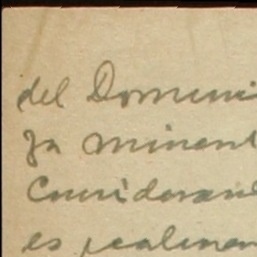 del Domini
ya minant
Considerand
es realmen